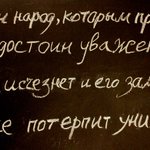 народ, которым пр
достоин уважен
исчезнет и его за
потерпит уни